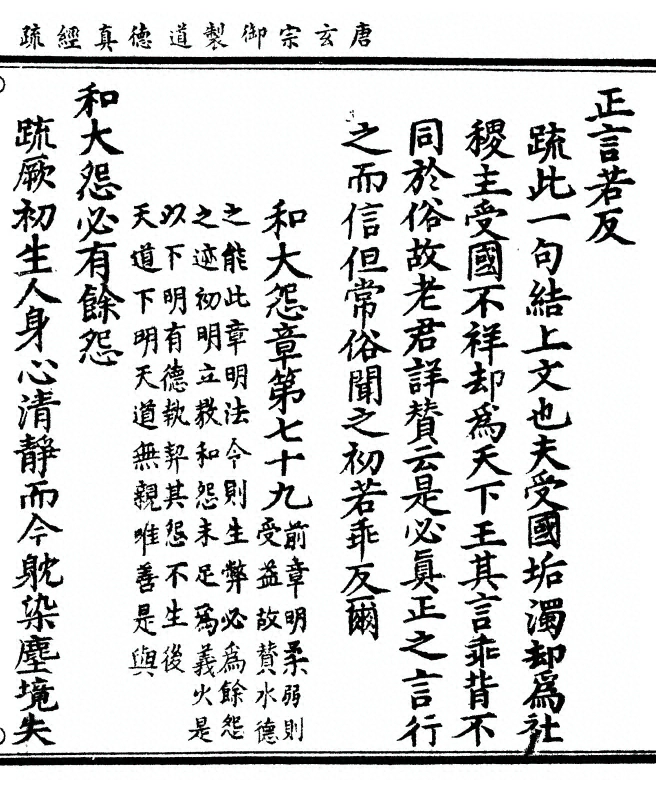 唐玄宗御製道德真經疏
正言若反
疏此一句結上文也夫受國垢濁却為社
稷主受國不祥却為天下王其言乖背不
同於俗故老君詳贊云是必真正之言行
之而信但常俗聞之初若乖反爾
和大怨章第七十九
前章明柔弱則
受益故贊水德
之能此章明法令則生弊必為餘怨
之迹初明立教和怨未足為義火是
以下明有德執契其怨不生後
天道下明天道無親唯善是與
和大怨必有餘怨
疏厥初生人身心清靜而今躭染塵境失